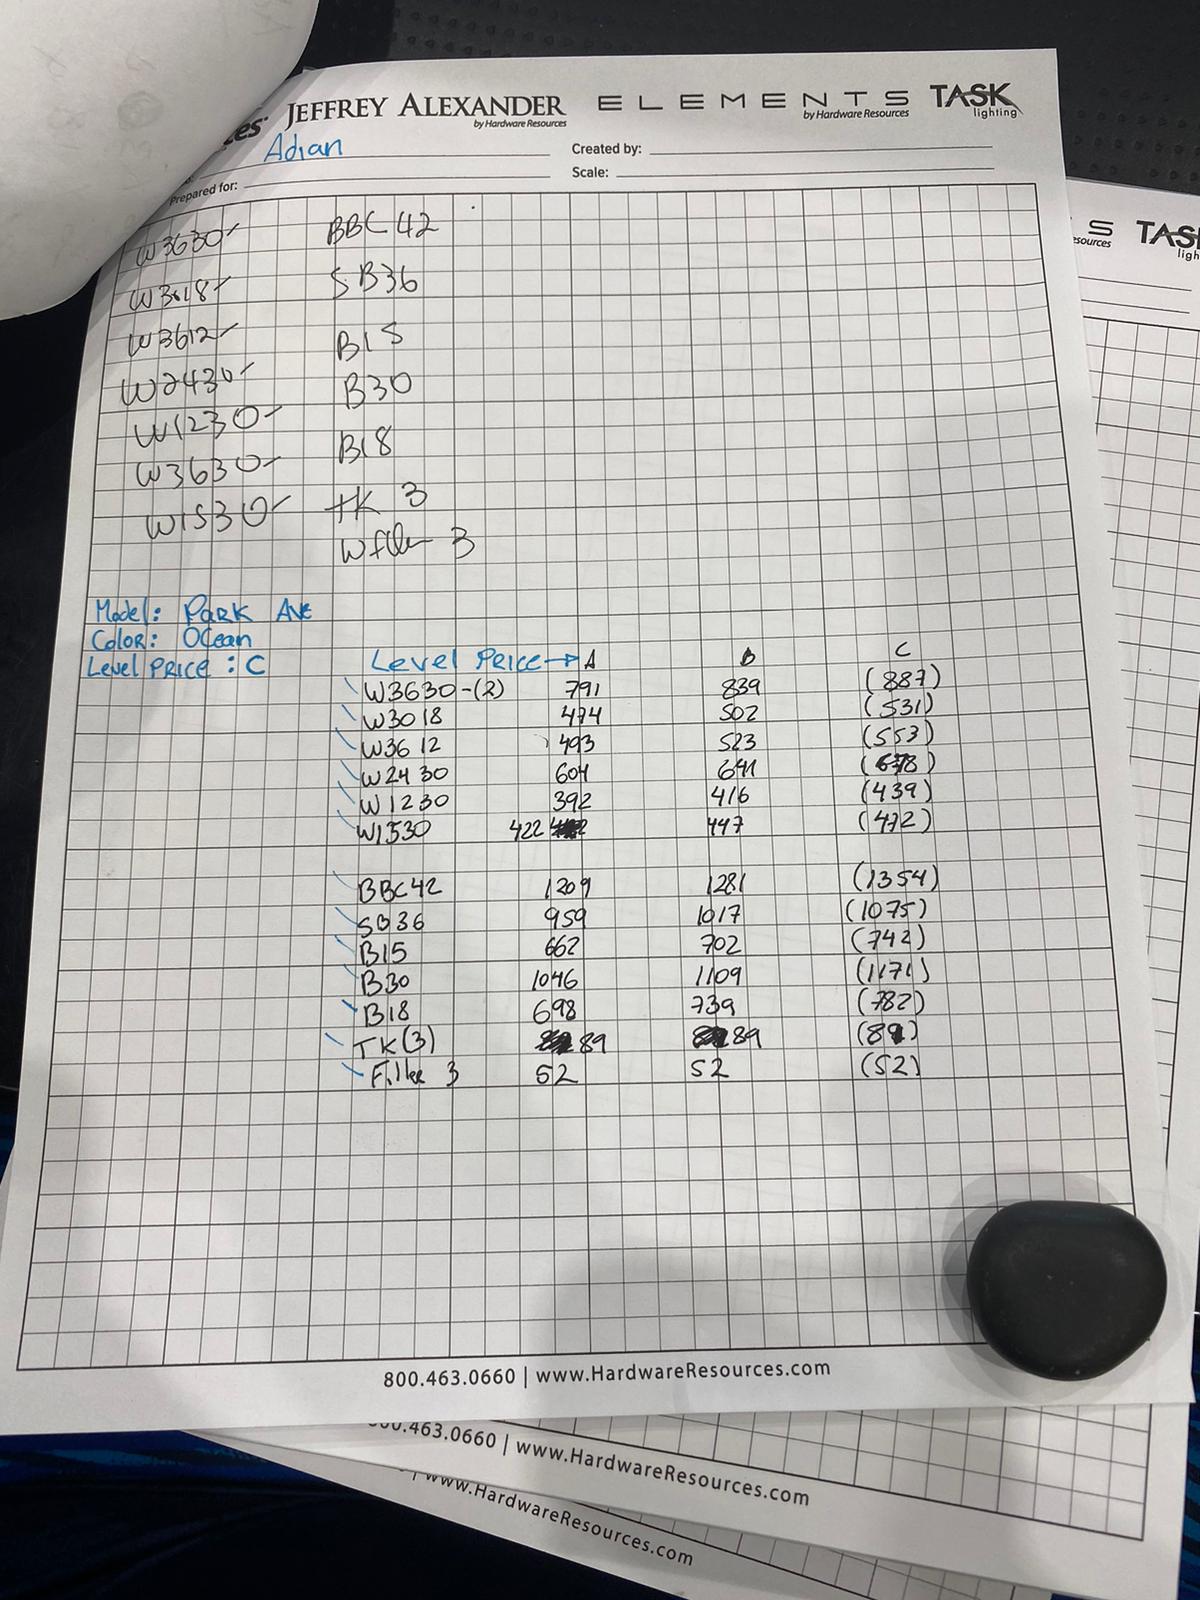 ces JEFFREY ALEXANDER ELEMENTS TASK
by Hardware Resources by Hardware Resources lighting
Adian Created by:
Prepared for: Scale:
W3630 BBC 42
W3018 SB36
W3612 B15
W2430 B30
W1230 B18
W3630 TK 3
W1530 3
Model: Park Ave
Color: Ocean
Level Price : C Level Price→ A B C
W3630-(2) 791 839 (887)
W3018 474 502 (531)
W3612 493 523 (553)
W2430 604 641 (678)
W1230 392 416 (439)
W1530 422 447 (472)
BBC42 1209 1281 (1354)
SB36 959 1017 (1075)
B15 662 702 (742)
B30 1046 1109 (1171)
B18 698 739 (782)
TK(3) 89 89 (89)
Filler 3 52 52 (52)
800.463.0660 | www.HardwareResources.com
S TAS
esources ligh
00.463.0660 | www.HardwareResources.com
| www.HardwareResources.com